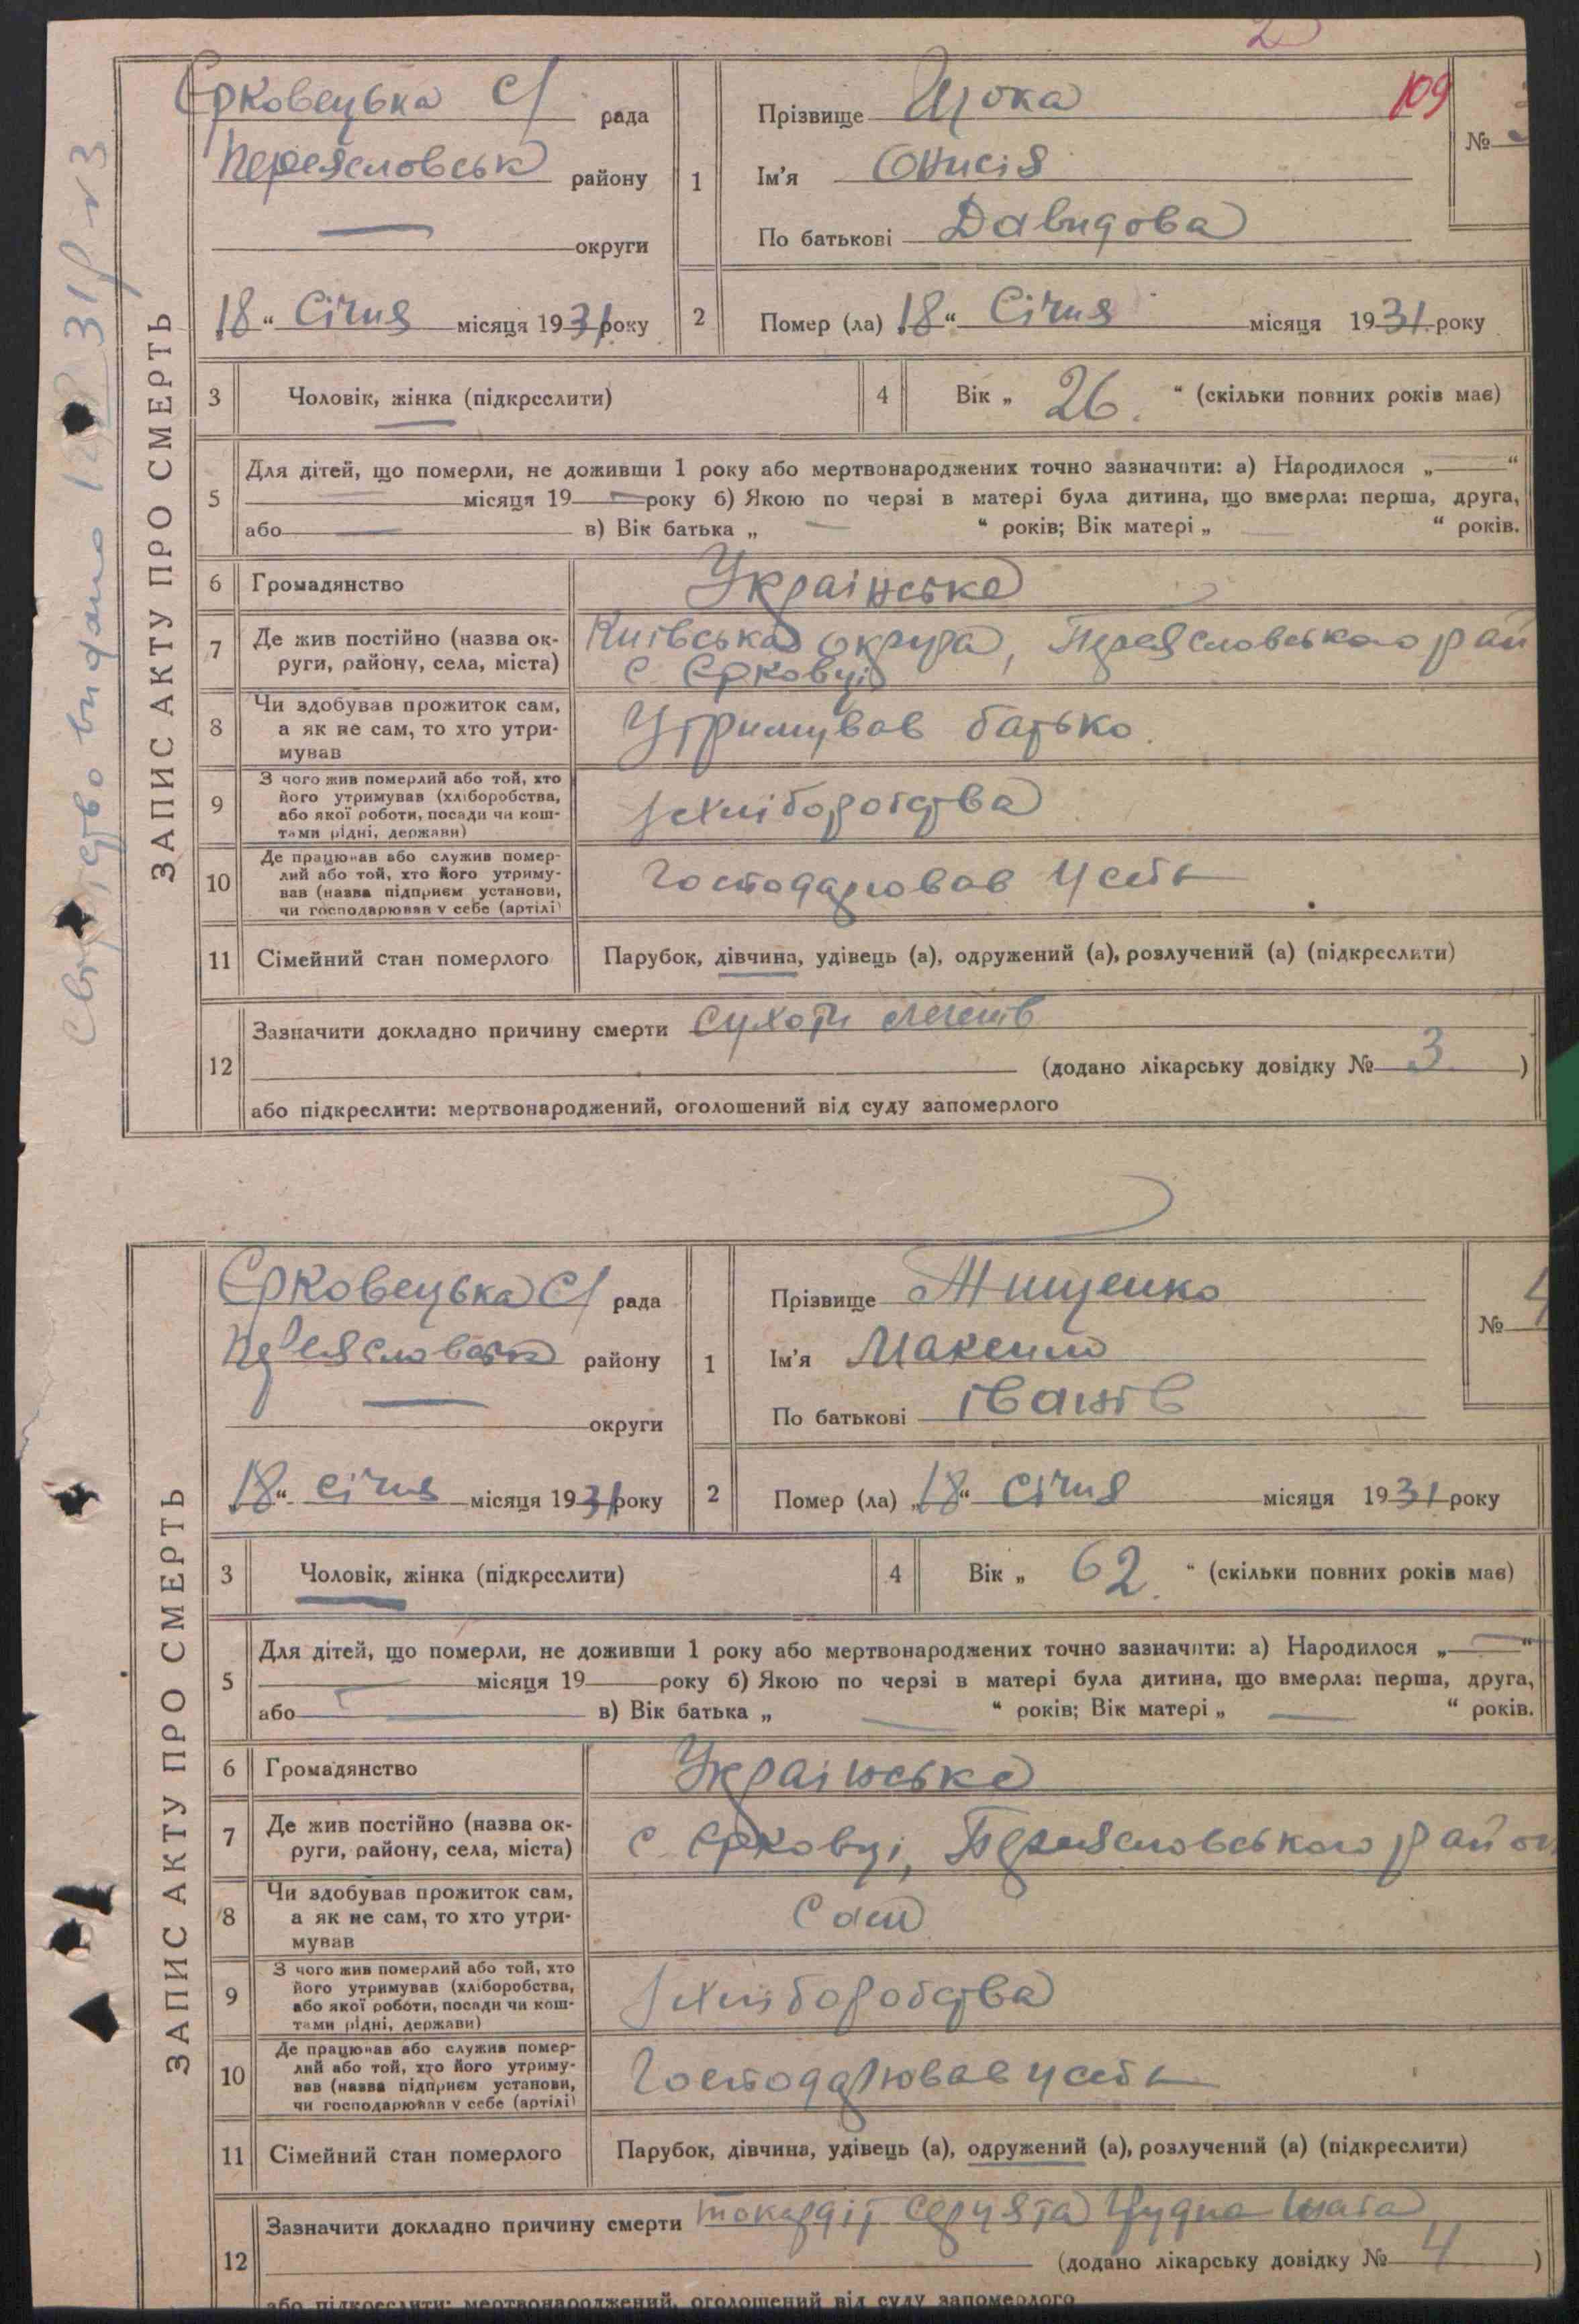 2
109
Єрковецька с/ рада
Переяславськ району
округи
18 “ Січня місяця 1931 року
1
Прізвище Цюка
Ім’я Онисія
По батькові Давидова
№
2
Помер (ла) 18 “ Січня місяця 1931 року
ЗАПИС АКТУ ПРО СМЕРТЬ
видано 31р № 3
3 Чоловік, жінка (підкреслити)
4 Вік „ 26. “ (скільки повних років має)
5 Для дітей, що померли, не доживши 1 року або мертвонароджених точно зазначити: а) Народилося „ — “
місяця 19 — року б) Якою по черзі в матері була дитина, що вмерла: перша, друга,
або — в) Вік батька „ — “ років; Вік матері „ — “ років.
6 Громадянство Українське
7 Де жив постійно (назва ок-
руги, району, села, міста)
Київська округа, Переясловського рай
с Єрковці
8 Чи здобував прожиток сам,
а як не сам, то хто утри-
мував
Утримував батько.
9 З чого жив померлий або той, хто
його утримував (хліборобства,
або якої роботи, посади чи кош-
тами рідні, держави)
з хліборобства
10 Де працював або служив помер-
лий або той, хто його утриму-
вав (назва підприєм установи,
чи господарював у себе (артілі)
Господарював у себе
11 Сімейний стан померлого Парубок, дівчина, удівець (а), одружений (а), розлучений (а) (підкреслити)
12 Зазначити докладно причину смерти Сухоти легенів
(додано лікарську довідку № 3 )
або підкреслити: мертвонароджений, оголошений від суду запомерлого
Єрковецька с/ рада
Переясловськ району
округи
18 “ січня місяця 1931 року
1
Прізвище Тищенко
Ім’я Максим
По батькові Іванів
№ 4
2
Помер (ла) „ 18 “ Січня місяця 1931 року
ЗАПИС АКТУ ПРО СМЕРТЬ
3 Чоловік, жінка (підкреслити)
4 Вік „ 62. “ (скільки повних років має)
5 Для дітей, що померли, не доживши 1 року або мертвонароджених точно зазначити: а) Народилося „ — “
місяця 19 — року б) Якою по черзі в матері була дитина, що вмерла: перша, друга,
або — в) Вік батька „ — “ років; Вік матері „ — “ років.
6 Громадянство Українське
7 Де жив постійно (назва ок-
руги, району, села, міста)
с Єрковці, Переясловського район
8 Чи здобував прожиток сам,
а як не сам, то хто утри-
мував
Сам
9 З чого жив померлий або той, хто
його утримував (хліборобства,
або якої роботи, посади чи кош-
тами рідні, держави)
з хліборобства
10 Де працював або служив помер-
лий або той, хто його утриму-
вав (назва підприєм установи,
чи господарював у себе (артілі)
Господарював у себе
11 Сімейний стан померлого Парубок, дівчина, удівець (а), одружений (а), розлучений (а) (підкреслити)
12 Зазначити докладно причину смерти
(додано лікарську довідку № 4 )
або підкреслити: мертвонароджений, оголошений від суду запомерлого